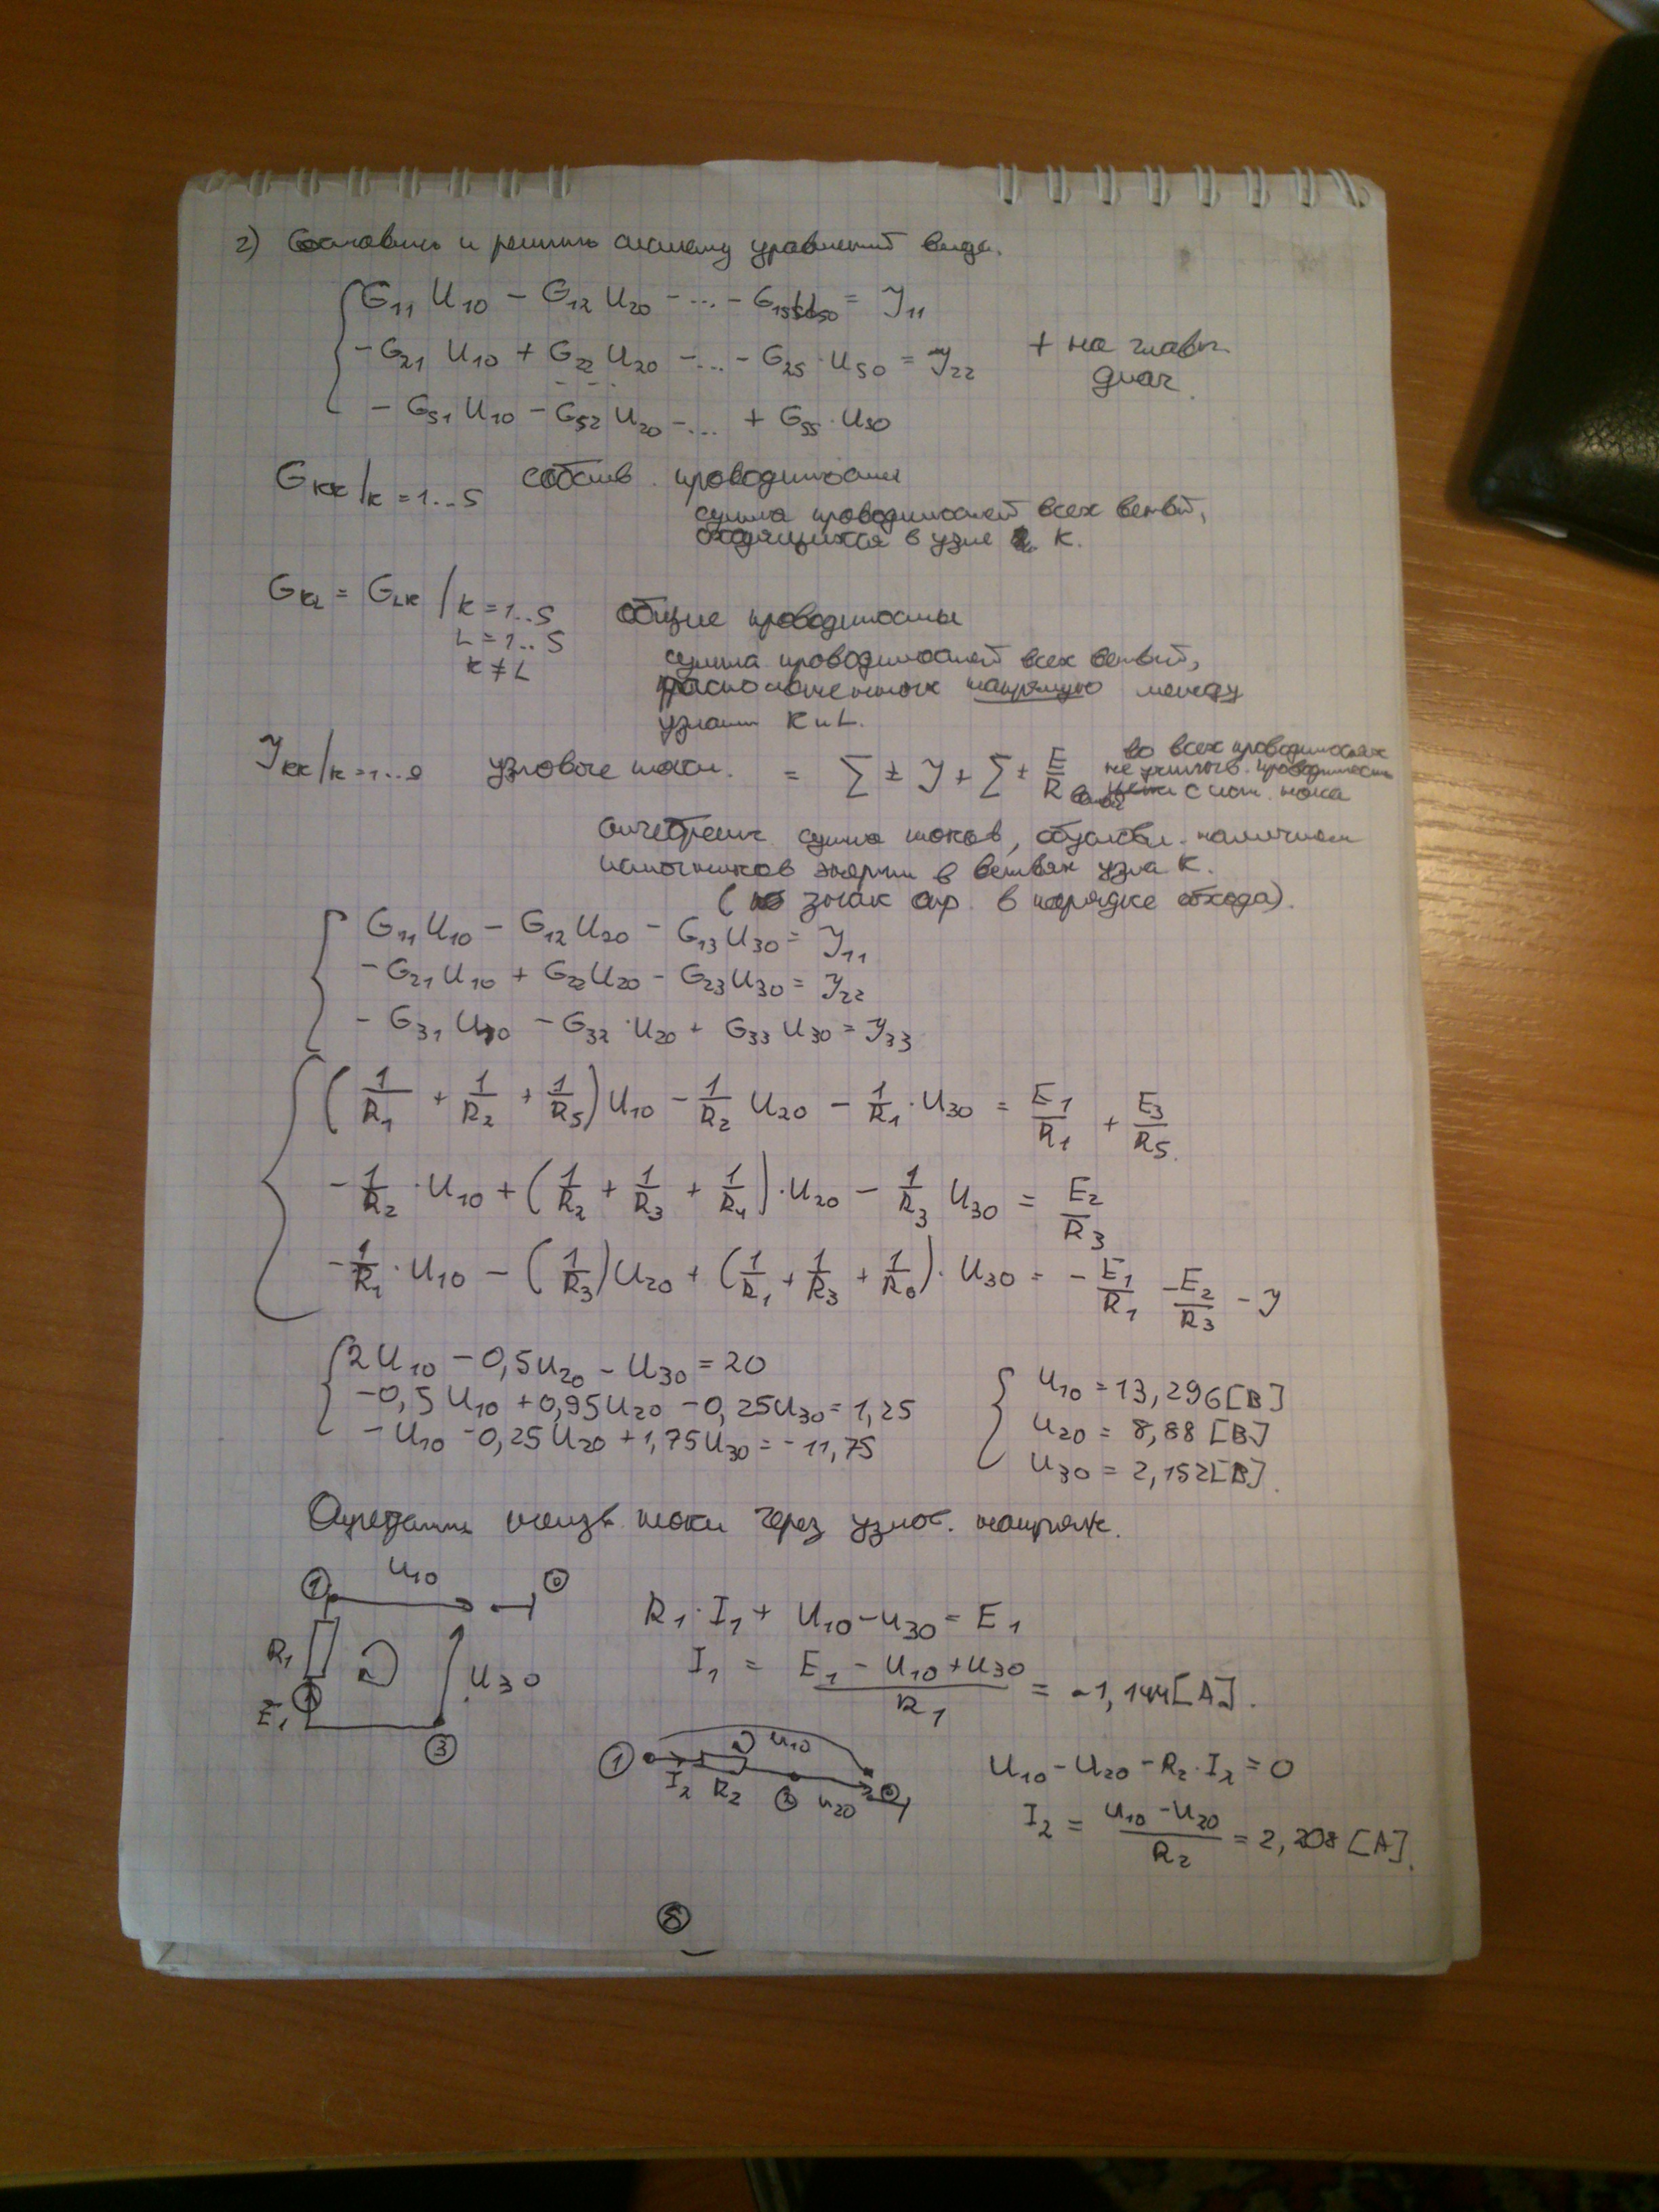 2) Составить и решить систему уравнений вида.
G11 U10 − G12 U20 − ... − G1S US0 = J11
−G21 U10 + G22 U20 − ... − G2S · US0 = J22
+ на главн. диаг.
− GS1 U10 − GS2 U20 − ... + GSS · US0
GKK / K = 1...S собств. проводимости
сумма проводимостей всех ветвей,
сходящихся в узле K.
GKL = GLK / K = 1..S общие проводимости
L = 1..S
K ≠ L
сумма проводимостей всех ветвей,
расположенных напрямую между
узлами K и L.
JKK / K = 1...S узловые токи. = ∑ ± J + ∑ ± E/R
во всех проводимостях
не учитыв. проводимость
с ист. тока
алгебраич. сумма токов, обуслвл. наличием
источников энергии в ветвях узла K.
( знак опр. в порядке обхода).
G11 U10 − G12 U20 − G13 U30 = J11
−G21 U10 + G22 U20 − G23 U30 = J22
− G31 U10 − G32 · U20 + G33 U30 = J33
(1/R1 + 1/R2 + 1/R5) U10 − 1/R2 U20 − 1/R1 · U30 = E1/R1 + E3/R5
− 1/R2 · U10 + (1/R2 + 1/R3 + 1/R4) · U20 − 1/R3 U30 = E2/R3
− 1/R1 · U10 − (1/R3) U20 + (1/R1 + 1/R3 + 1/R6) · U30 = − E1/R1 − E2/R3 − J
2U10 − 0,5U20 − U30 = 20
−0,5 U10 + 0,95U20 − 0,25U30 = 1,25
− U10 − 0,25U20 + 1,75U30 = −11,75
U10 = 13,296[В]
U20 = 8,88 [В]
U30 = 2,152[В].
Определить неизв. токи через узлов. напряж.
1 U10 0
R1 U30
E1
3
R1 · I1 + U10 − U30 = E1
I1 = (E1 − U10 + U30)/R1 = −1,144[А].
1 I2 R2 U10 2 U20 0
U10 − U20 − R2 · I2 = 0
I2 = (U10 − U20)/R2 = 2,208 [А].